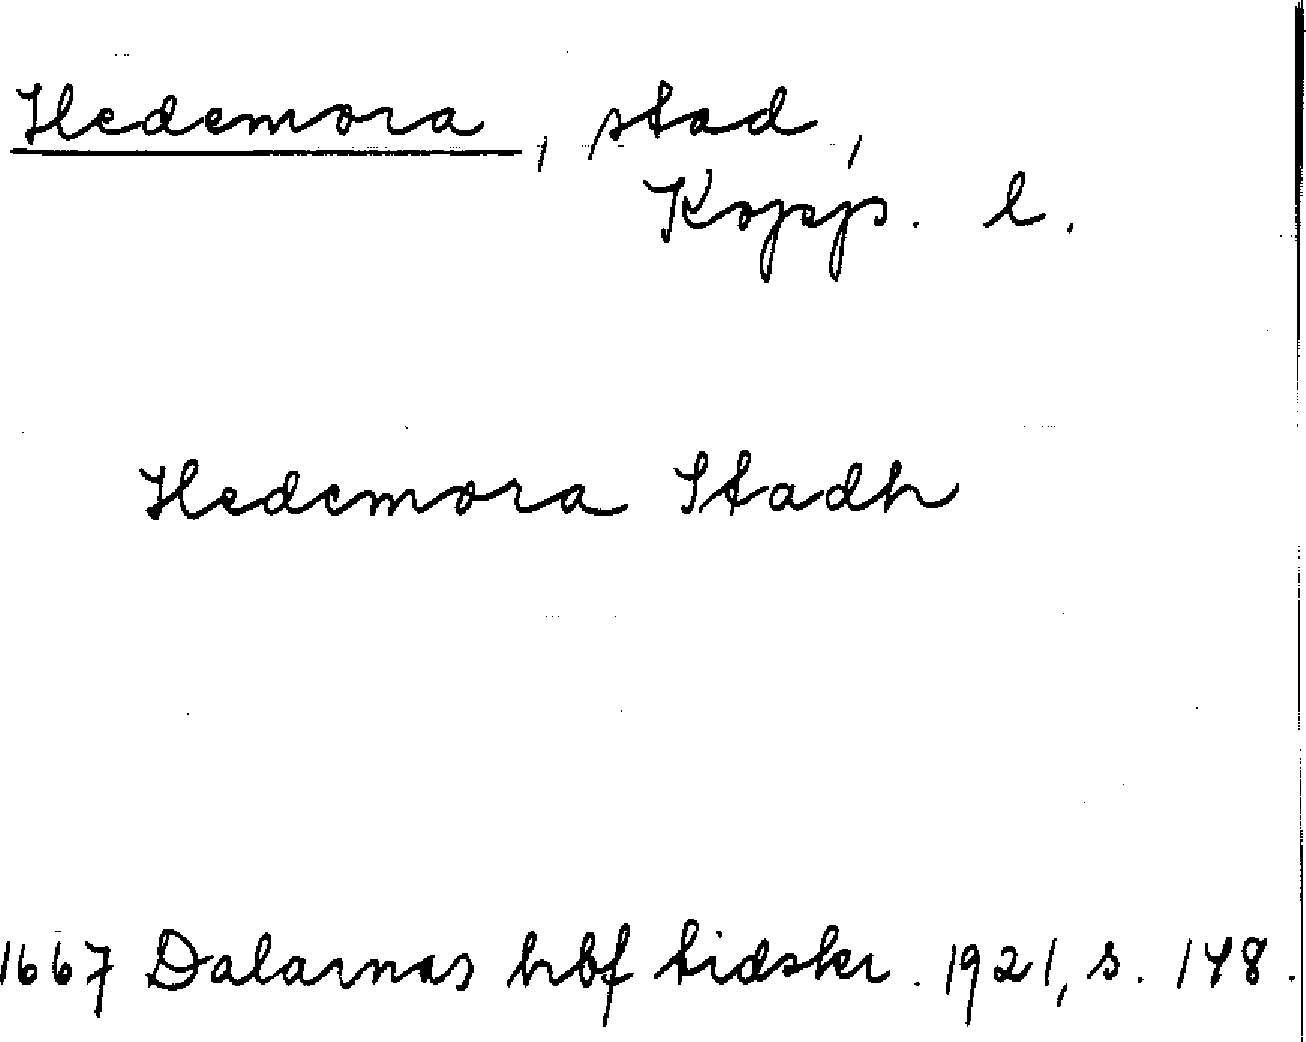 Hedemora, stad,
Kopp. l.
Hedemora Stadh
1667 Dalarnas hbf tidskr. 1921, s. 148.